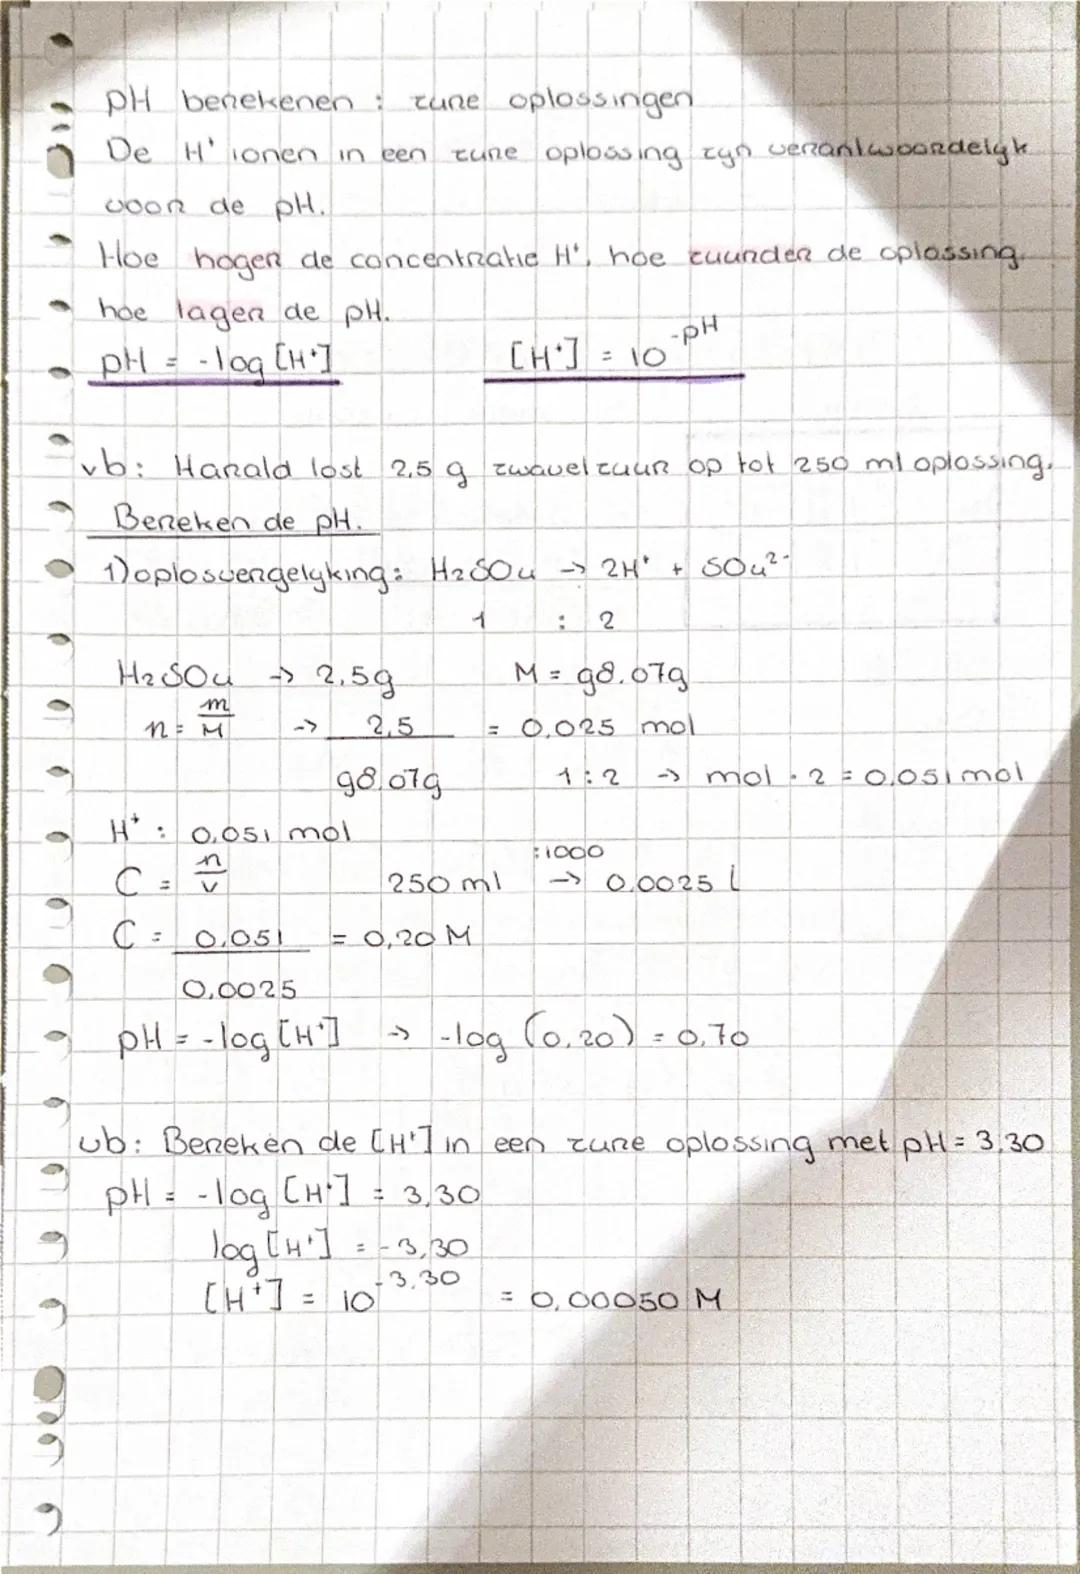 pH berekenen : zure oplossingen
De H⁺ ionen in een zure oplossing zyn verantwoordelyk
voor de pH.
Hoe hoger de concentratie H⁺, hoe zuurder de oplossing.
hoe lager de pH.
pH = -log [H⁺] [H⁺] = 10^-pH
vb: Harald lost 2,5 g zwavelzuur op tot 250 ml oplossing.
Bereken de pH.
1) oplosvergelyking: H₂SO₄ -> 2H⁺ + SO₄²⁻
1 : 2
H₂SO₄ -> 2,5g M = 98.07g
n = m/M -> 2,5 = 0,025 mol
98.07g 1:2 -> mol · 2 = 0,051 mol
H⁺ : 0,051 mol
:1000
C = n/v 250 ml -> 0,0025 l
C = 0,051 = 0,20 M
0,0025
pH = -log [H⁺] -> -log (0,20) = 0,70
vb: Bereken de [H⁺] in een zure oplossing met pH = 3,30
pH = -log [H⁺] = 3,30
log [H⁺] = -3,30
[H⁺] = 10^-3,30 = 0,00050 M